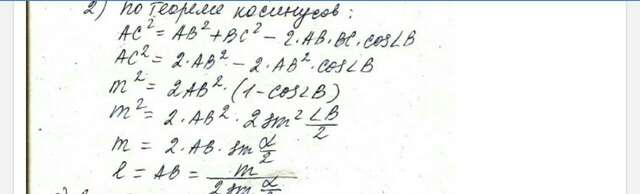 2) по теореме косинусов:
AC² = AB² + BC² - 2·AB·BC·cos∠B
AC² = 2·AB² - 2·AB²·cos∠B
m² = 2AB²·(1-cos∠B)
m² = 2·AB²·2sin² ∠B/2
m = 2·AB·sin α/2
l = AB = m/(2 sin α/2)